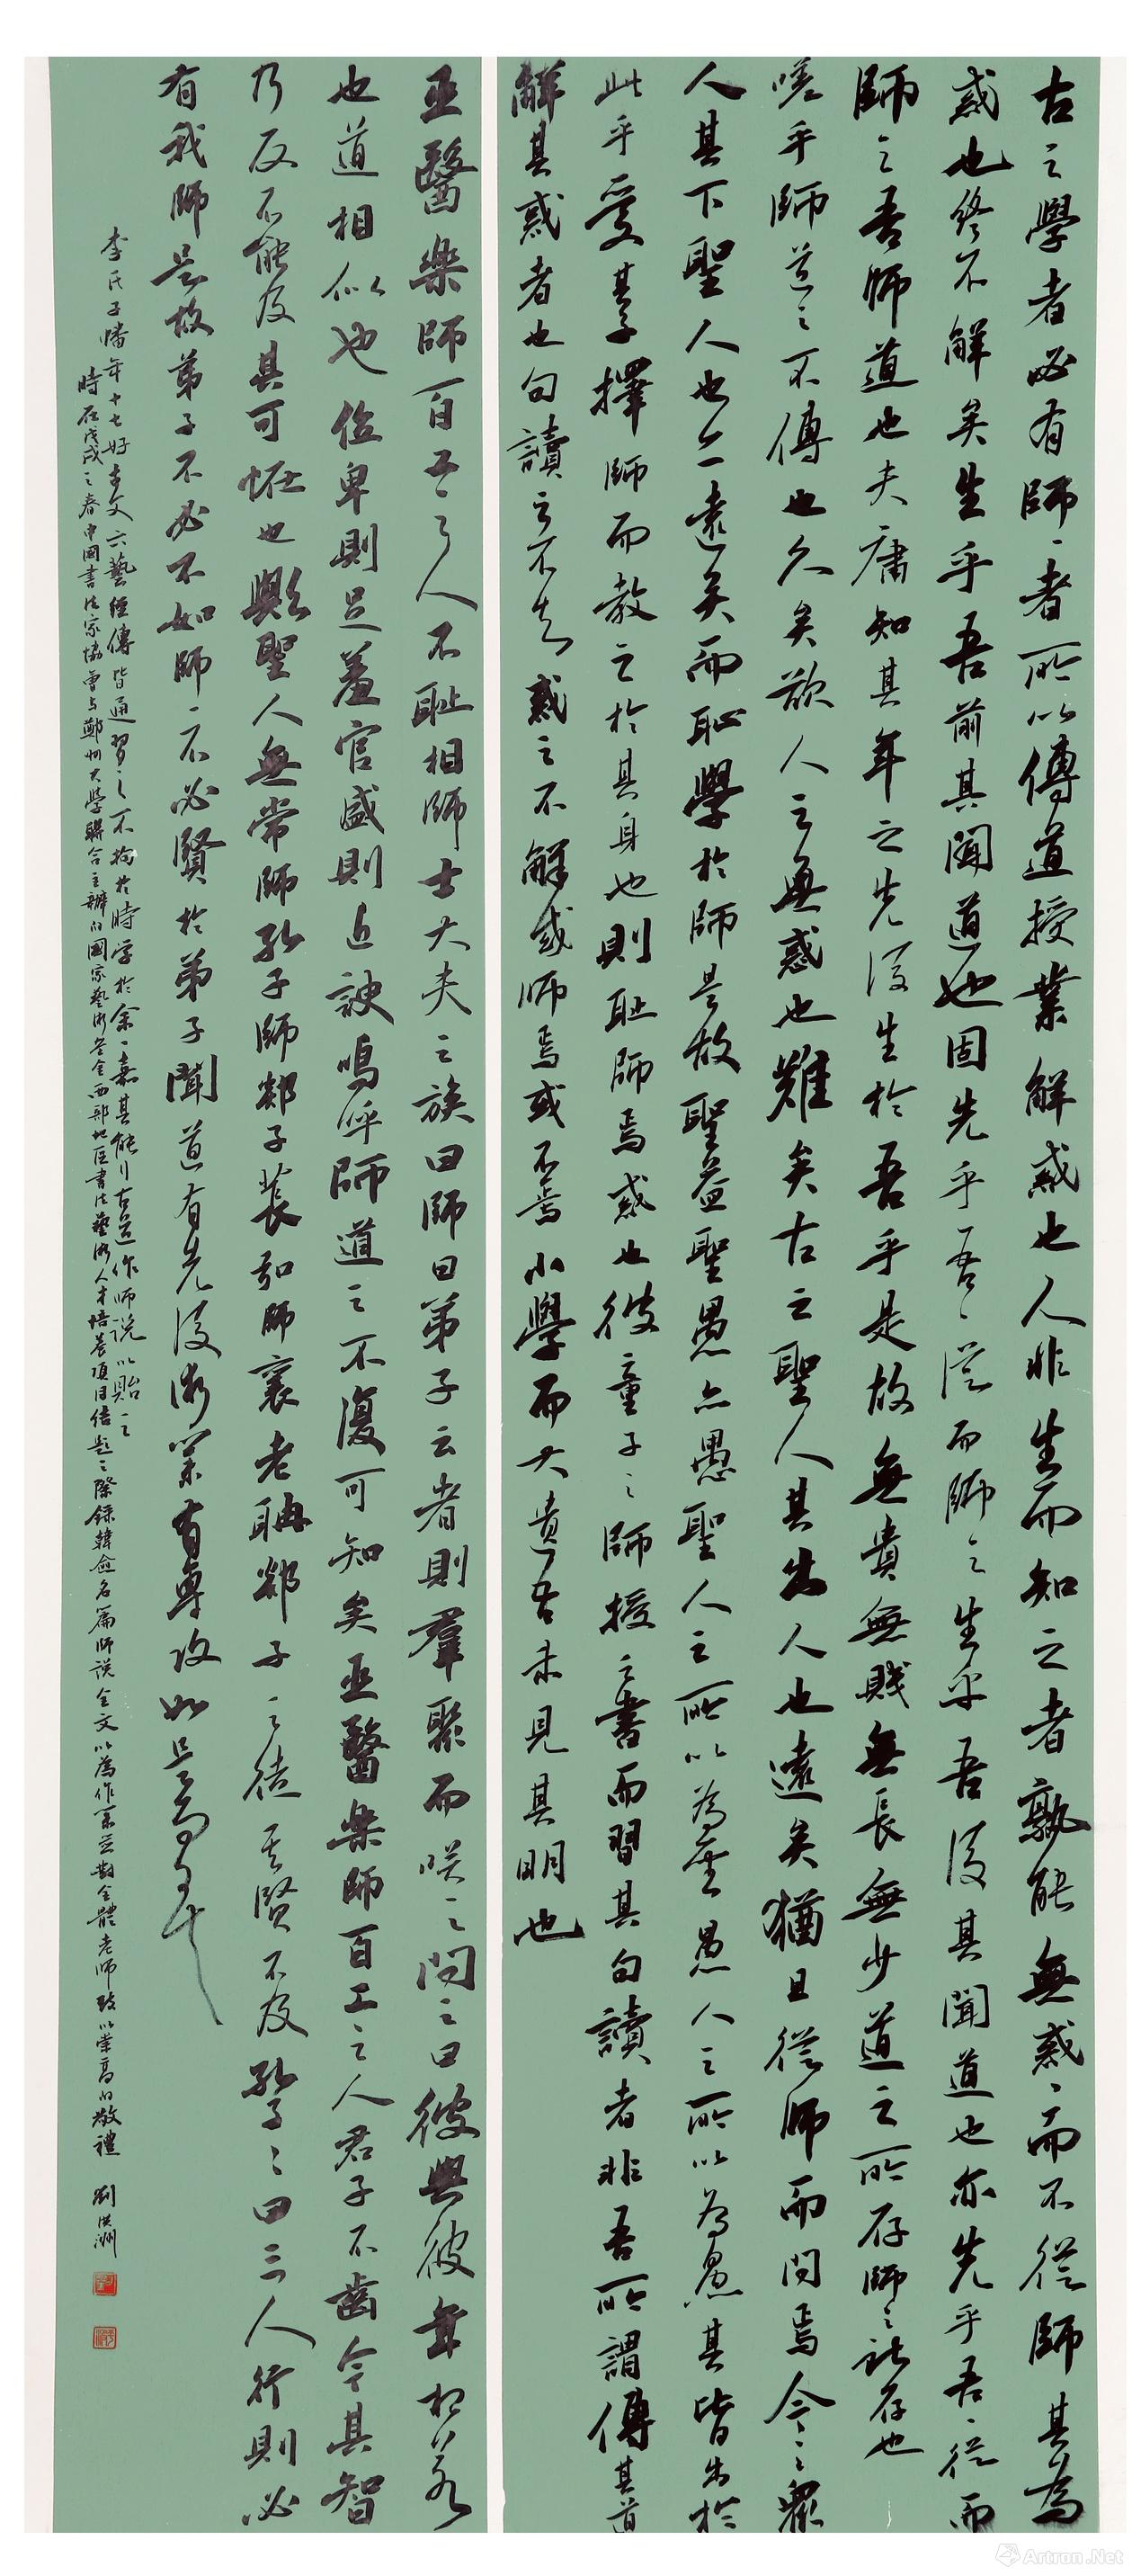 古之學者必有師〻者所以傳道授業解惑也人非生而知之者孰能無惑〻而不從師其為
惑也終不解矣生乎吾前其聞道也固先乎吾〻從而師之生乎吾後其聞道也亦先乎吾〻從而
師之吾師道也夫庸知其年之先後生於吾乎是故無貴無賤無長無少道之所存師之所存也
嗟乎師道之不傳也久矣欲人之無惑也難矣古之聖人其出人也遠矣猶且從師而問焉今之眾
人其下聖人也亦遠矣而恥學於師是故聖益聖愚亦愚聖人之所以為聖愚人之所以為愚其皆出於
此乎愛其子擇師而教之於其身也則恥師焉惑也彼童子之師授之書而習其句讀者非吾所謂傳其道
解其惑者也句讀之不知惑之不解或師焉或不焉小學而大遺吾未見其明也
巫醫樂師百工之人不恥相師士大夫之族曰師曰弟子云者則羣聚而咲之問之曰彼與彼年相若
也道相似也位卑則足羞官盛則近諛嗚呼師道之不復可知矣巫醫樂師百工之人君子不齒今其智
乃反不能及其可怪也歟聖人無常師孔子師郯子萇弘師襄老聃郯子之徒其賢不及孔子〻曰三人行則必
有我師是故弟子不必不如師〻不必賢於弟子聞道有先後術業有專攻如是而已
李氏子蟠年十七好古文六藝經傳皆通習之不拘於時學於余〻嘉其能行古道作師說以貽之
時在戊戌之春中國書法家協會與鄭州大學聯合主辦的國家藝術基金西部地區書法藝術人才培養項目結題之際錄韓愈名篇師說全文以為作業並對全體老師致以崇高的敬禮 劉洪洲
Artron.Net